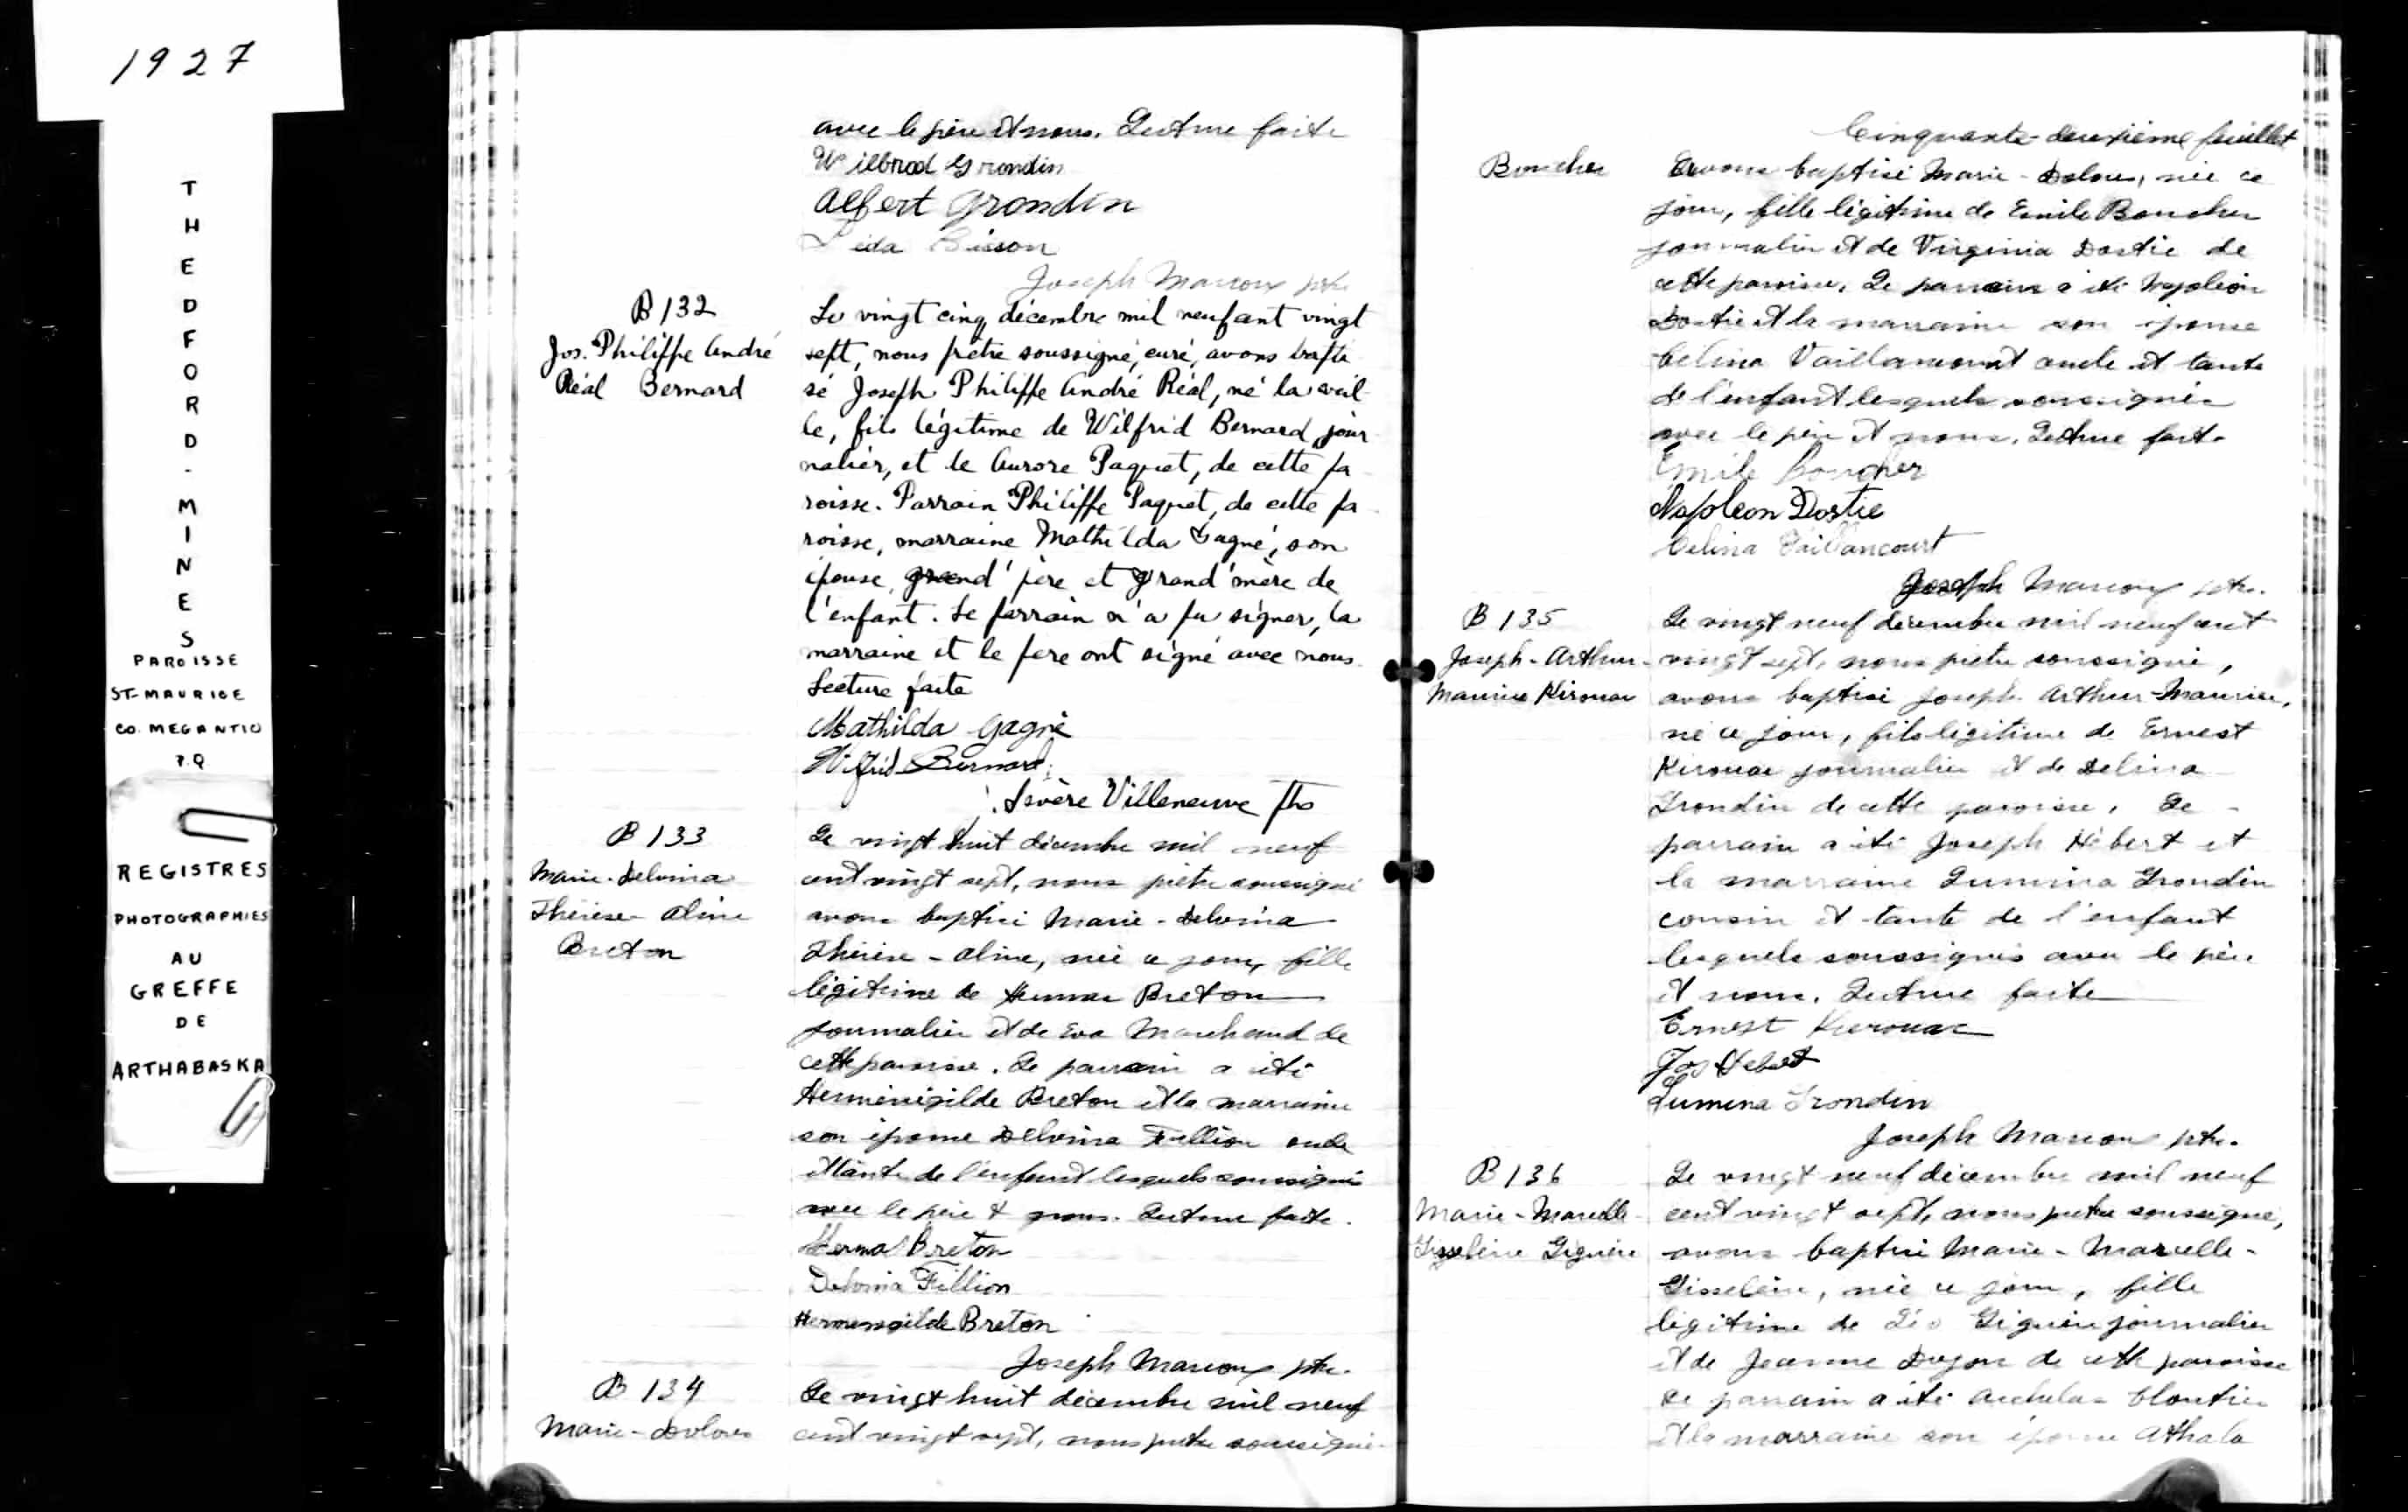 1927
THEDFORD-MINES
PAROISSE
ST-MAURICE
CO. MEGANTIC
P.Q
REGISTRES
PHOTOGRAPHIES
AU
GREFFE
DE
ARTHABASKA
avec le père et nous. Lecture faite
Wilbrod Grondin
Alfert Grondin
Bisson
Joseph Marcoux ptr.
B 132
Jos. Philippe André
Réal Bernard
Le vingt cinq décembre mil neuf cent vingt
sept, nous prêtre soussigné, curé, avons bapti
sé Joseph Philippe André Réal, né la veil
le, fils légitime de Wilfrid Bernard, jour
nalier, et de Aurore Paquet, de cette pa
roisse. Parrain Philippe Paquet, de cette pa
roisse, marraine Mathilda Gagné, son
épouse, grand'père et grand'mère de
l'enfant. Le parrain n'a pu signer, la
marraine et le père ont signé avec nous.
Lecture faite
Mathilda Gagné
Wilfrid Bernard
Sévère Villeneuve
B 133
Marie-Delvina
Thérèse-Aline
Breton
Le vingt huit décembre mil neuf
cent vingt sept, nous prêtre soussigné
avons baptisé Marie-Delvina
Thérèse-Aline, née ce jour, fille
légitime de Breton
journalier et de Eva Marchand de
cette paroisse. Le parrain a été
Herménégilde Breton et la marraine
son épouse Delvina Fillion oncle
et tante de l'enfant lesquels soussignés
avec le père & nous. Lecture faite.
Herma Breton
Delvina Fillion
Hermengilde Breton
Joseph Marcoux ptr.
B 134
Marie-Dolores
Le vingt huit décembre mil neuf
cent vingt sept, nous prêtre soussigné
Cinquante-deuxième feuillet
Boucher
avons baptisé Marie-Dolores, née ce
jour, fille légitime de Emile Boucher
journalier et de Virginia Dostie de
cette paroisse. Le parrain a été Napoléon
Dostie et la marraine son épouse
Célina Vaillancourt oncle et tante
de l'enfant lesquels soussignés
avec le père et nous. Lecture faite
Emile Boucher
Napoleon Dostie
Celina Vaillancourt
Joseph Marcoux ptr.
B 135
Joseph-Arthur-
Maurice Kirouac
Le vingt neuf décembre mil neuf cent
vingt sept, nous prêtre soussigné,
avons baptisé Joseph Arthur-Maurice,
né ce jour, fils légitime de Ernest
Kirouac journalier et de Delina
Grondin de cette paroisse. Le
parrain a été Joseph Hébert et
la marraine Lumina Grondin
cousin et tante de l'enfant
lesquels soussignés avec le père
et nous. Lecture faite
Ernest Kirouac
Jos Hebert
Lumina Grondin
Joseph Marcoux ptr.
B 136
Marie-Marcelle-
Gisselène Giguère
Le vingt neuf décembre mil neuf
cent vingt sept, nous prêtre soussigné,
avons baptisé Marie-Marcelle-
Gisselène, née ce jour, fille
légitime de Léo Giguère journalier
et de Jeanne de cette paroisse
Le parrain a été Cloutier
et la marraine son épouse Athala